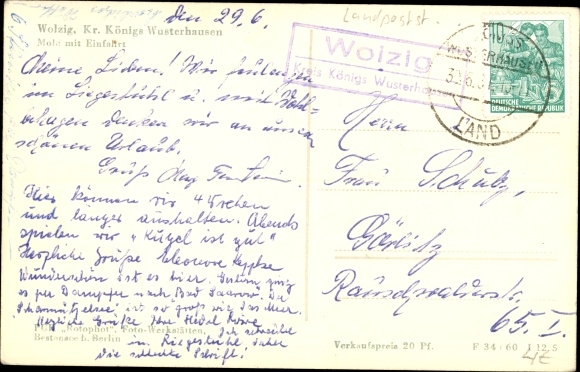 den 29.6.
Landpoststr.
Wolzig, Kr. Königs Wusterhausen
Mole mit Einfahrt
Wolzig
Kreis Königs Wusterhausen
WUSTERHAUSEN
LAND
DEUTSCHE
DEMOKRATISCHE REPUBLIK
Meine Lieben! Wir faulenzen
im Liegestuhl u. mit Wohl-
behagen denken wir an unsern
schönen Urlaub.
Gruß
Hier können wir 4 Wochen
und langer aushalten. Abends
spielen wir "Kugel ist gut"
Herzliche Grüße Eleonore
Wunderschön ist es hier. Gestern ging
es per Dampfer nach Bad Saarow. Der
Scharmützelsee, ist so groß wie das Meer
Herzliche Grüße Ihre Hedel
Ich schreibe
im Liegestuhle daher
die schlechte Schrift!
Herrn
Frau Schulz,
Görlitz
65. I.
"Rotophot", Foto-Werkstätten,
Bestensee b. Berlin
Verkaufspreis 20 Pf.
F 34/60 I 12,5